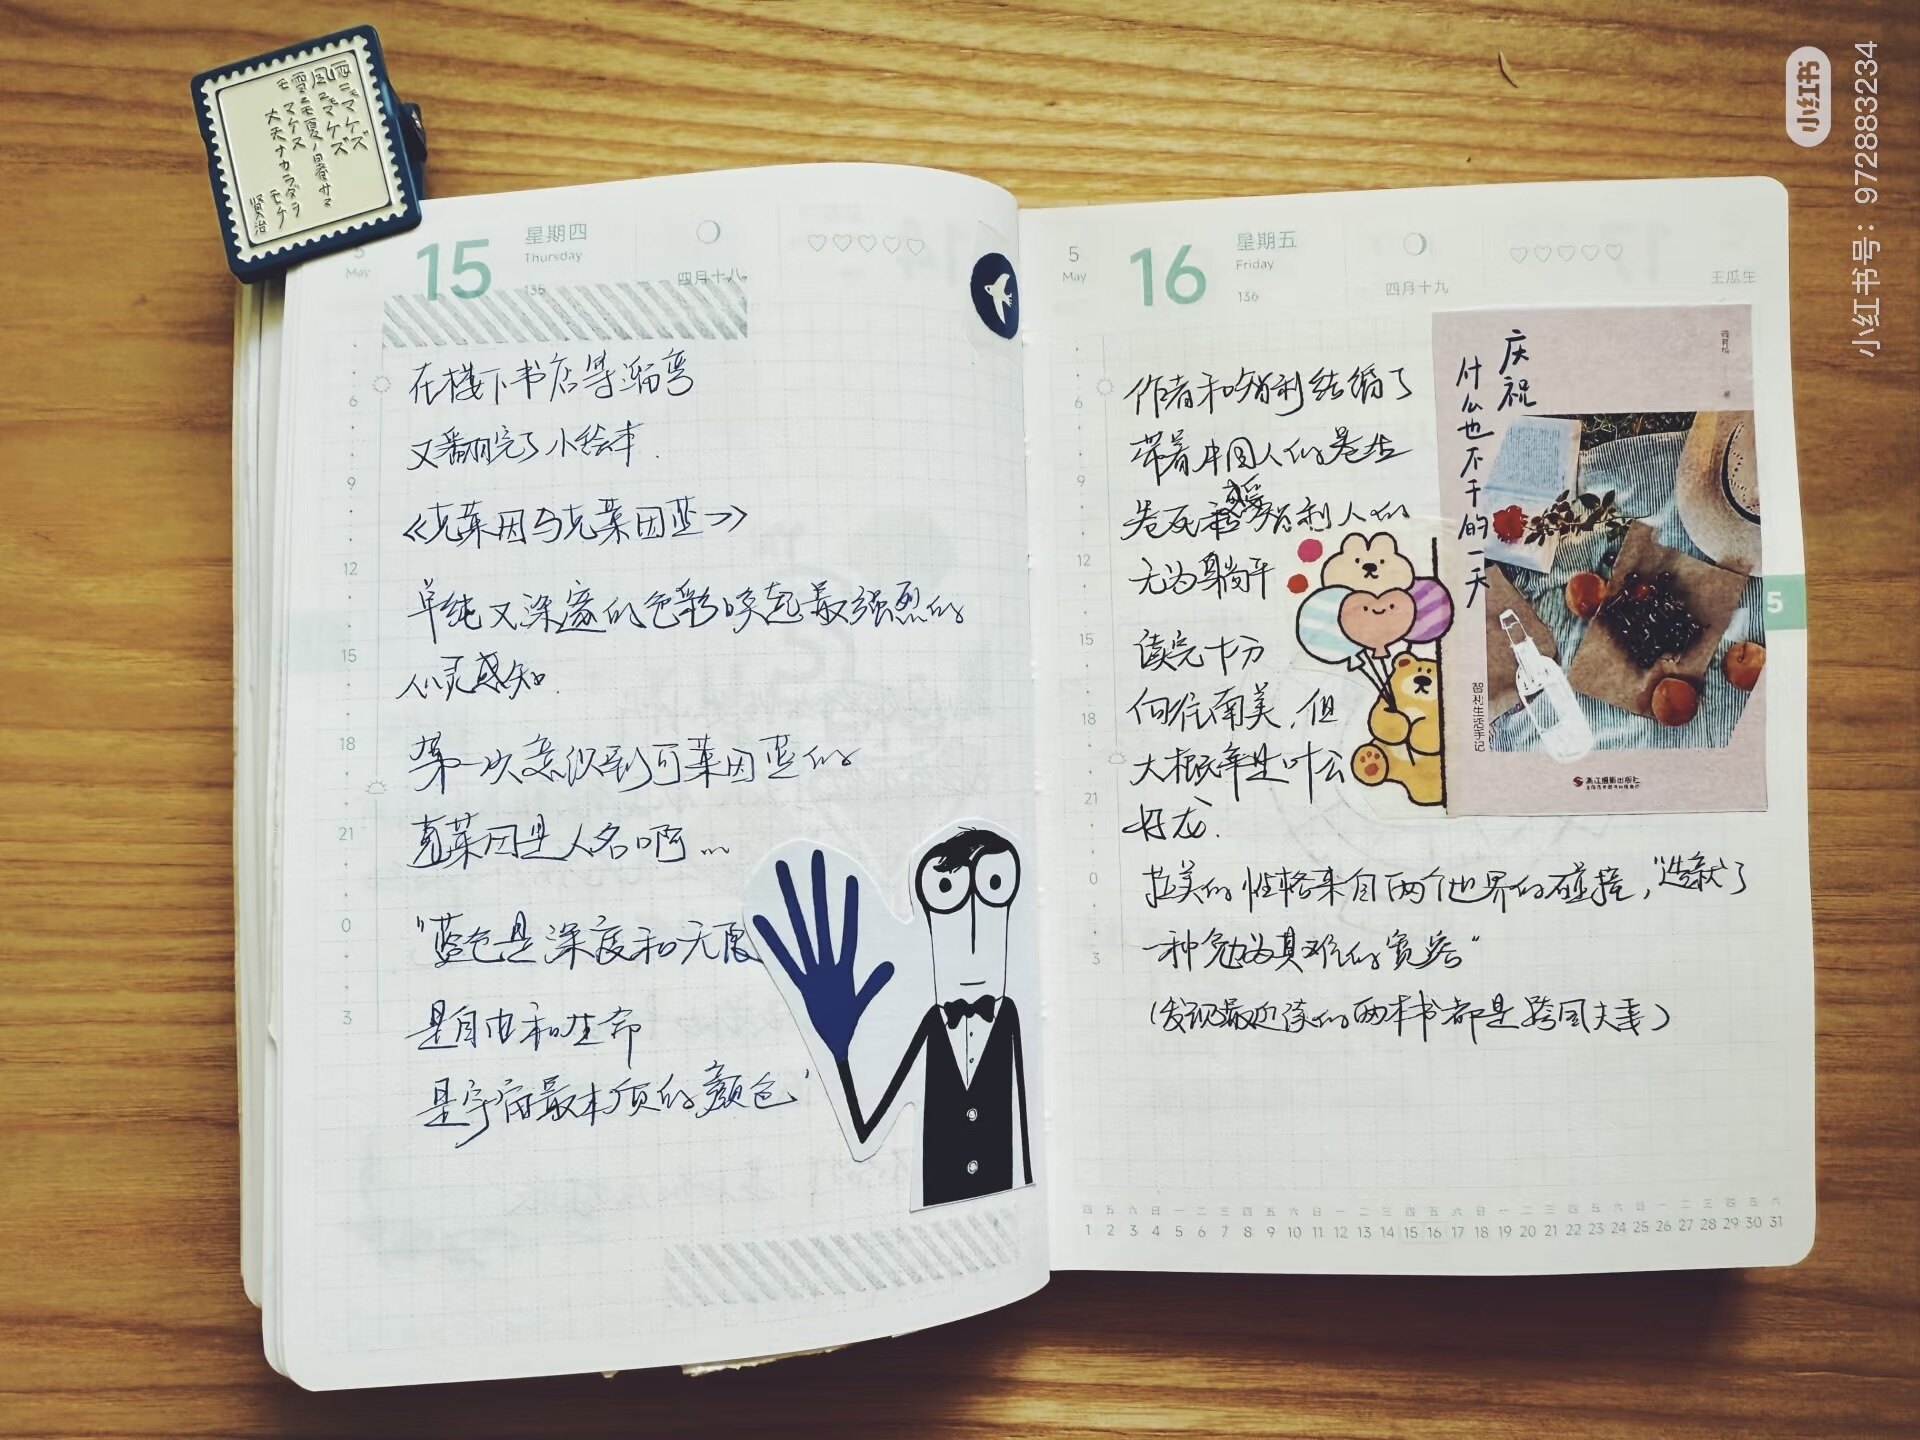 雨ニモマケズ
風ニモマケズ
雪ニモ夏ノ暑サニ
モマケヌ
丈夫ナカラダヲ
モチ
賢治
5
May
15
星期四
Thursday
135
四月十八
♡♡♡♡♡
6
9
12
15
18
21
0
3
在楼下书店等溜弯
又翻完了小绘本.
《克莱因与克莱因蓝》
单纯又深邃的色彩唤起最强烈的
心灵感知.
第一次意识到可莱因蓝的
克莱因是人名啊…
“蓝色是深度和无限
是自由和生命
是宇宙最本质的颜色”
5
May
16
星期五
Friday
136
四月十九
♡♡♡♡♡
王瓜生
6
9
12
15
18
21
0
3
作者和智利结婚了
带着中国人的卷生
卷死 感受智利人的
无为躺平
读完十分
向往南美,但
大概率是叶公
好龙.
拉美的性格来自两个世界的碰撞,“造就了
一种勉为其难的宽容”
(发现最近读的两本书都是跨国夫妻)
庆祝
什么也不干的一天
智利生活手记
浙江摄影出版社
5
四 五 六 日 一 二 三 四 五 六 日 一 二 三 四 五 六 日 一 二 三 四 五 六 日 一 二 三 四 五 六
1 2 3 4 5 6 7 8 9 10 11 12 13 14 15 16 17 18 19 20 21 22 23 24 25 26 27 28 29 30 31
小红书
小红书号：972883234